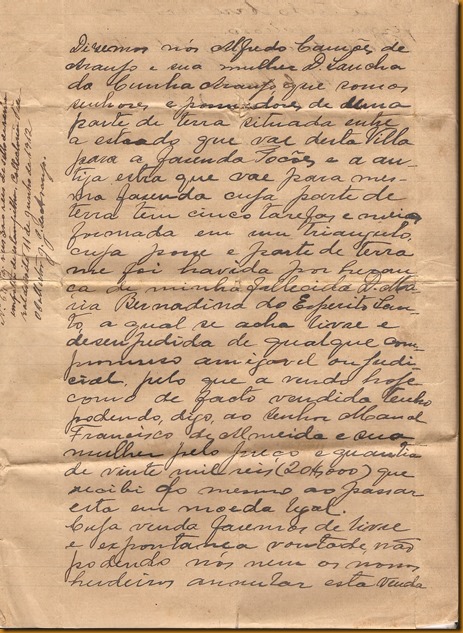 Dizemos nós Alfredo Campos de
Araujo e sua mulher D. Sancha
da Cunha Araujo, que somos
senhores e possuidores de uma
parte de terra situada entre
a estrado que vae desta Villa
para a fazenda Tocós e a an-
tiga estra que vae para mes-
ma fazenda cuja parte de
terra tem cinco tarefas e meia
formada em um triangulo,
cuja posse e parte de terra
me foi havida por heran-
ca de minha fallecida D. Ma-
ria Bernadina do Espirito San-
to, a qual se acha livre e
desempedida de qualque com-
promisso amigavel ou Judi-
cial, pelo que a vendo hoje
como de facto vendida tenho
podendo, digo, ao senhor Manoel
Francisco de Almeida e sua
mulher pelo preço e quantia
de vinte mil reis (20$000) que
recibi do mesmo ao passar
esta em moeda legal.
Cuja venda fazemos de livre
e expontanea vontade, não
podendo nós nem os nossos
herdeiros annullar esta venda
de Junho de 1912